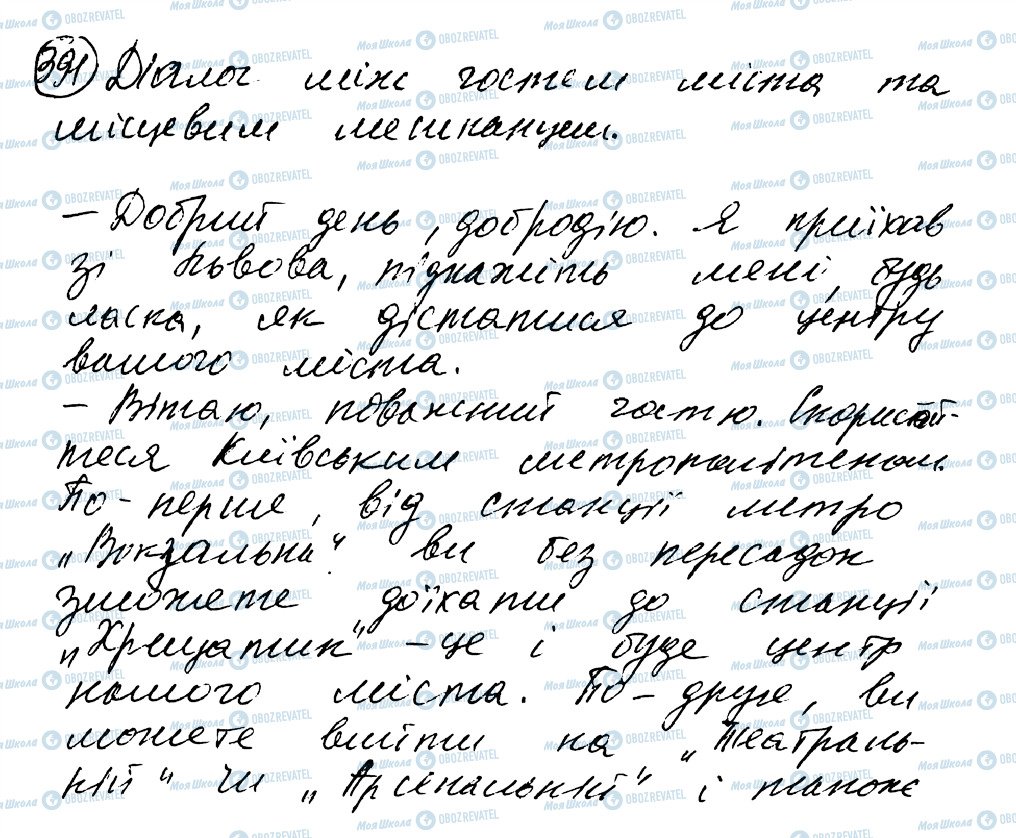 391 Діалог між гостем міста та
місцевим мешканцем.
– Добрий день, добродію. Я приїхав
зі Львова, підкажіть мені, будь
ласка, як дістатися до центру
вашого міста.
– Вітаю, поважний гостю. Скористай-
теся Київським метрополітеном.
По-перше, від станції метро
„Вокзальна“ ви без пересадок
зможете доїхати до станції
„Хрещатик“ – це і буде центр
нашого міста. По-друге, ви
можете вийти на „Театраль-
ній“ чи „Арсенальній“ і також